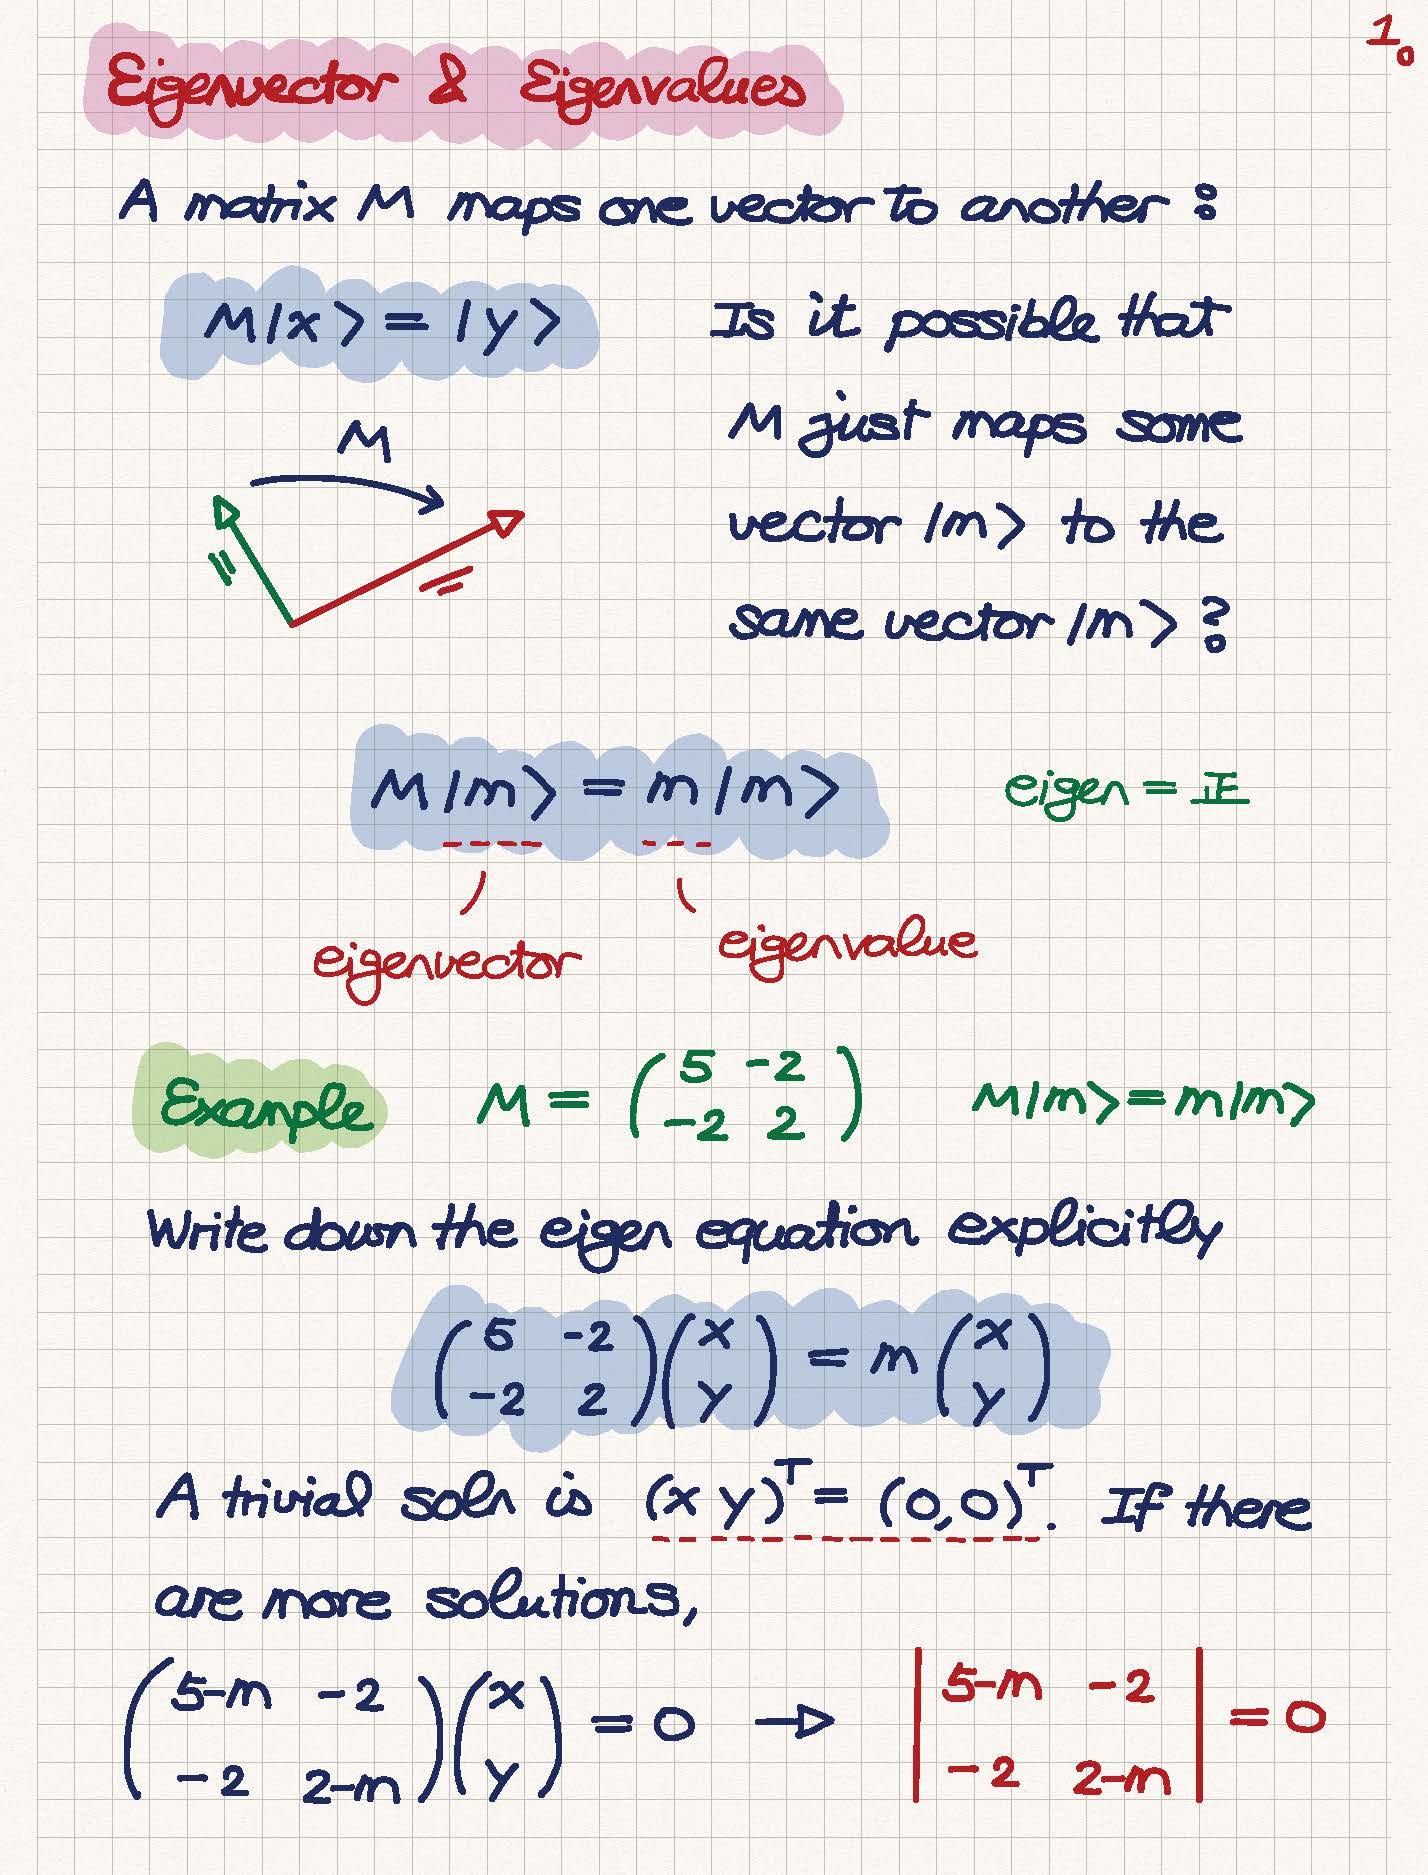 1.
Eigenvector & Eigenvalues
A matrix M maps one vector to another :
M|x> = |y>
Is it possible that
M just maps some
vector |m> to the
same vector |m> ?
M
M|m> = m|m>
eigen = 正
eigenvector
eigenvalue
Example M = ( 5 -2 ; -2 2 ) M|m> = m|m>
Write down the eigen equation explicitly
( 5 -2 ; -2 2 ) ( x ; y ) = m ( x ; y )
A trivial soln is (x y)ᵀ = (0,0)ᵀ. If there
are more solutions,
( 5-m -2 ; -2 2-m ) ( x ; y ) = 0 → | 5-m -2 ; -2 2-m | = 0